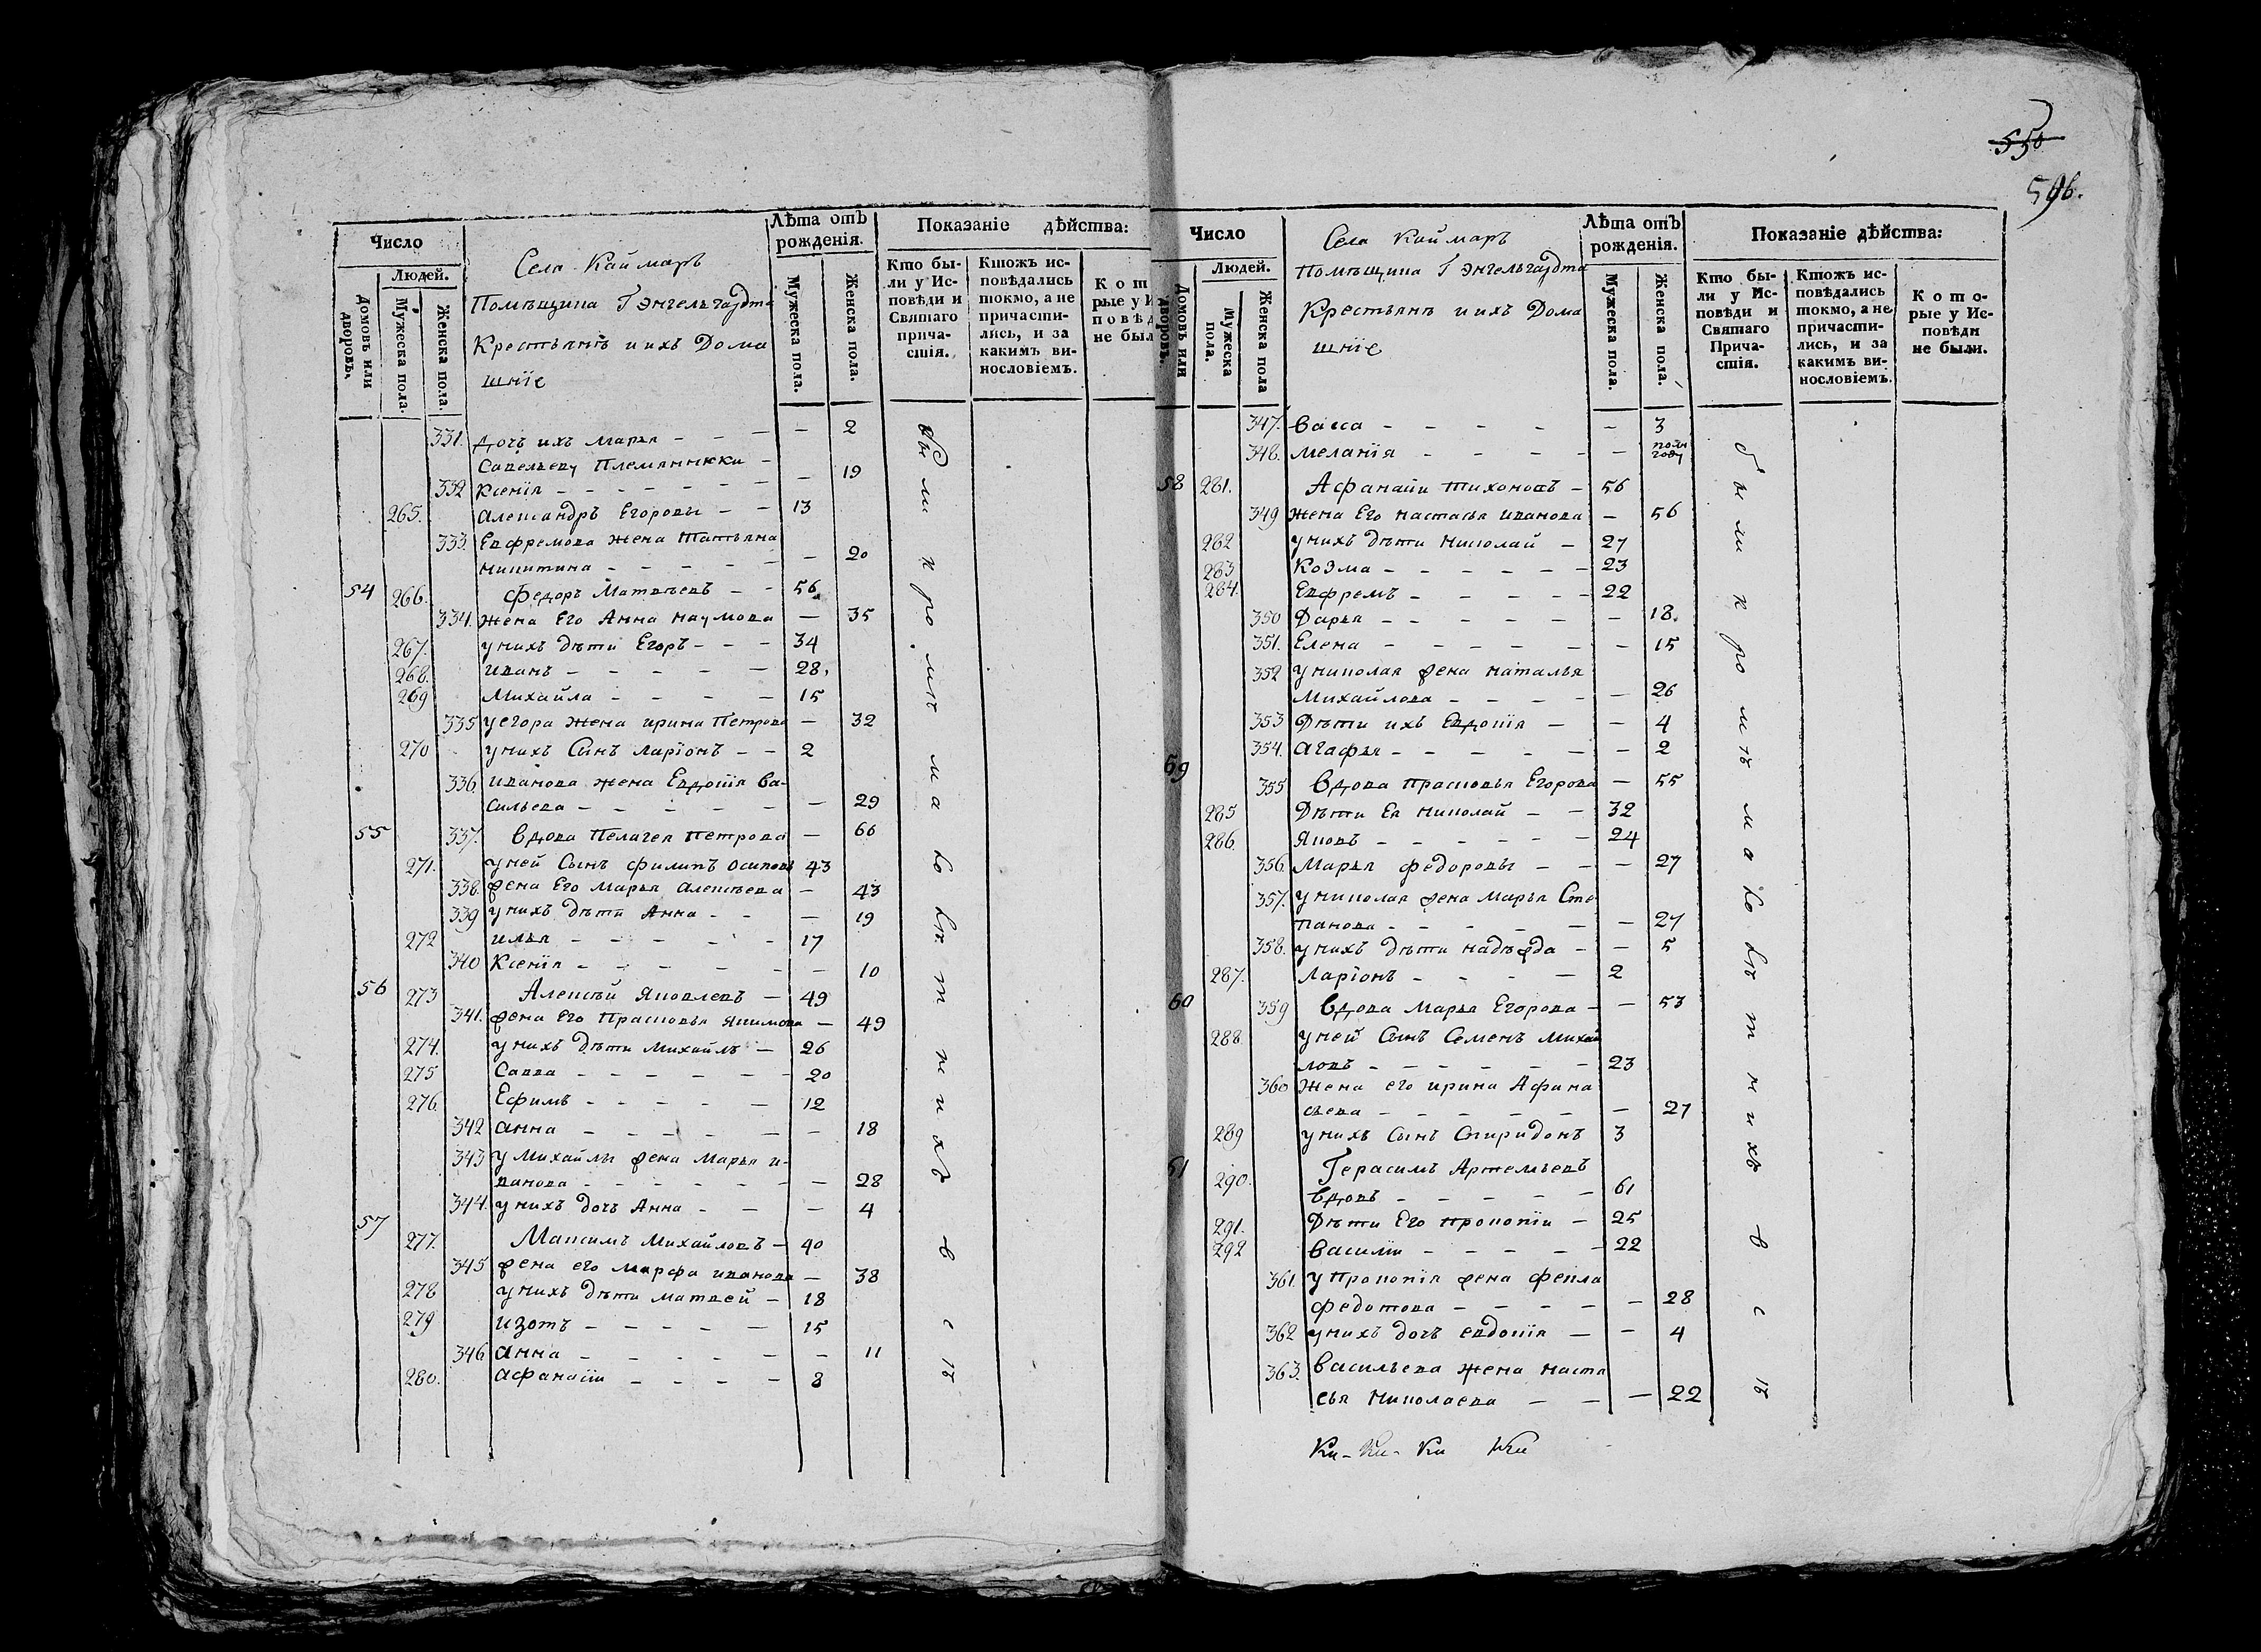 550
596.
Число
Людей.
Домовъ или дворовъ.
Мужеска пола.
Женска пола.
Села Каймаръ
Помѣщика Г Энгельгардта
Крестьянъ и ихъ Дома
шніе
Лѣта отъ рожденія.
Мужеска пола.
Женска пола.
Показаніе дѣйства:
Кто были у Исповѣди и Святаго причастія.
Ктожъ исповѣдались токмо, а не причастились, и за какимъ винословіемъ.
Кот
рые у И
повѣд
не был
331. дочь ихъ Марья - - - - 2
Савельеву Племянники -
332 Ксенія - - - - - - - 19
265. Александръ Егоровы - - 13
333. Евфремова жена Татьяна
Никитина - - - - - - 20
54 266. Федоръ Матвѣевъ - - 56.
334. жена Его Анна Наумова - 35
267. у нихъ дѣти Егоръ - - - 34
268. Иванъ - - - - - 28.
269 Михайла - - - - 15
335 у егора жена ирина Петрова - 32
270 у нихъ Сынъ Ларіонъ - - 2
336. иванова жена Евдокія Ва-
сильева - - - - - - 29
55 337. Вдова Пелагея Петрова - 66
271. у ней Сынъ Филипъ Осиповъ 43
338. жена Его Марья Алексѣева - 43
339 у нихъ дѣти Анна - - - 19
272 илья - - - - - 17
340 Ксенія - - - - - - 10
56 273 Алексѣй Яковлевъ - 49
341. жена Его Прасковья Якимова - 49
274. у нихъ дѣти Михайлъ - 26
275 Савва - - - - - - 20
276. Ефимъ - - - - - 12
342 анна - - - - - - 18
343 у Михайлы жена Марья и-
ванова - - - - - - 28
344. у нихъ дочь Анна - - - 4
57 277. Максимъ Михайловъ - 40
345 жена его Марфа иванова - 38
278 у нихъ дѣти Матвей - 18
279 изотъ - - - - - 15
346 анна - - - - - - 11
280. афанасіи - - - - 8
были кромѣ малолѣтнихъ всѣ
Число
Людей.
Домовъ или дворовъ.
Мужеска пола.
Женска пола
Села Каймаръ
Помѣщика Г Энгельгардта
Крестьянъ и ихъ Дома
шніе
Лѣта отъ рожденія.
Мужеска пола.
Женска пола.
Показаніе дѣйства:
Кто были у Исповѣди и Святаго Причастія.
Ктожъ исповѣдались токмо, а не причастились, и за какимъ винословіемъ.
Которые у Исповѣди не были.
347. Васса - - - - - 3
348. Меланія - - - - - полъ году
58 281. Афанаси Тихоновъ - 56
349 жена Его Настасья иванова - 56
282 у нихъ дѣти Николай - 27
283 Козма - - - - - - 23
284. Евфремъ - - - - - 22
350 Дарья - - - - - - 18.
351. Елена - - - - - - 15
352 у николая жена Наталья
Михайлова - - - - - 26
353 Дѣти ихъ Евдокія - - 4
354. агафья - - - - - - 2
59 355 Вдова Прасковья Егорова - 55
285 Дѣти Ея Николай - - 32
286. Яковъ - - - - - - 24
356. Марья Федоровы - - - 27
357. у николая жена Марья Сте
панова - - - - - - 27
358. у нихъ дѣти надѣжда - - 5
287. Ларіонъ - - - - 2
60 359 Вдова Марья Егорова - - 53
288. у ней Сынъ Семенъ Михай
ловъ - - - - - - 23
360 Жена его ирина Афана
сьева - - - - - - 27
289 у нихъ Сынъ Спиридонъ 3
61 290. Герасимъ Артемьевъ
вдовъ - - - - - 61
291. Дѣти Его Прокопіи - 25
292 Василіи - - - - - 22
361. у Прокопія жена Фекла
Федотова - - - - - 28
362 у нихъ дочь евдокія - - 4
363. Васильева жена наста
сья Николаева - - - 22
были кромѣ малолѣтнихъ всѣ